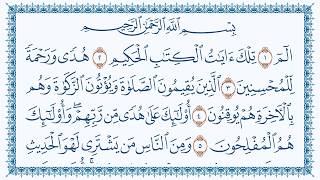 بِسْمِ ٱللَّهِ ٱلرَّحْمَٰنِ ٱلرَّحِيمِ
الٓمٓ ١ تِلْكَ ءَايَٰتُ ٱلْكِتَٰبِ ٱلْحَكِيمِ ٢ هُدًى وَرَحْمَةً
لِّلْمُحْسِنِينَ ٣ ٱلَّذِينَ يُقِيمُونَ ٱلصَّلَوٰةَ وَيُؤْتُونَ ٱلزَّكَوٰةَ وَهُم
بِٱلْأَخِرَةِ هُمْ يُوقِنُونَ ٤ أُو۟لَٰٓئِكَ عَلَىٰ هُدًى مِّن رَّبِّهِمْ ۖ وَأُو۟لَٰٓئِكَ
هُمُ ٱلْمُفْلِحُونَ ٥ وَمِنَ ٱلنَّاسِ مَن يَشْتَرِى لَهْوَ ٱلْحَدِيثِ